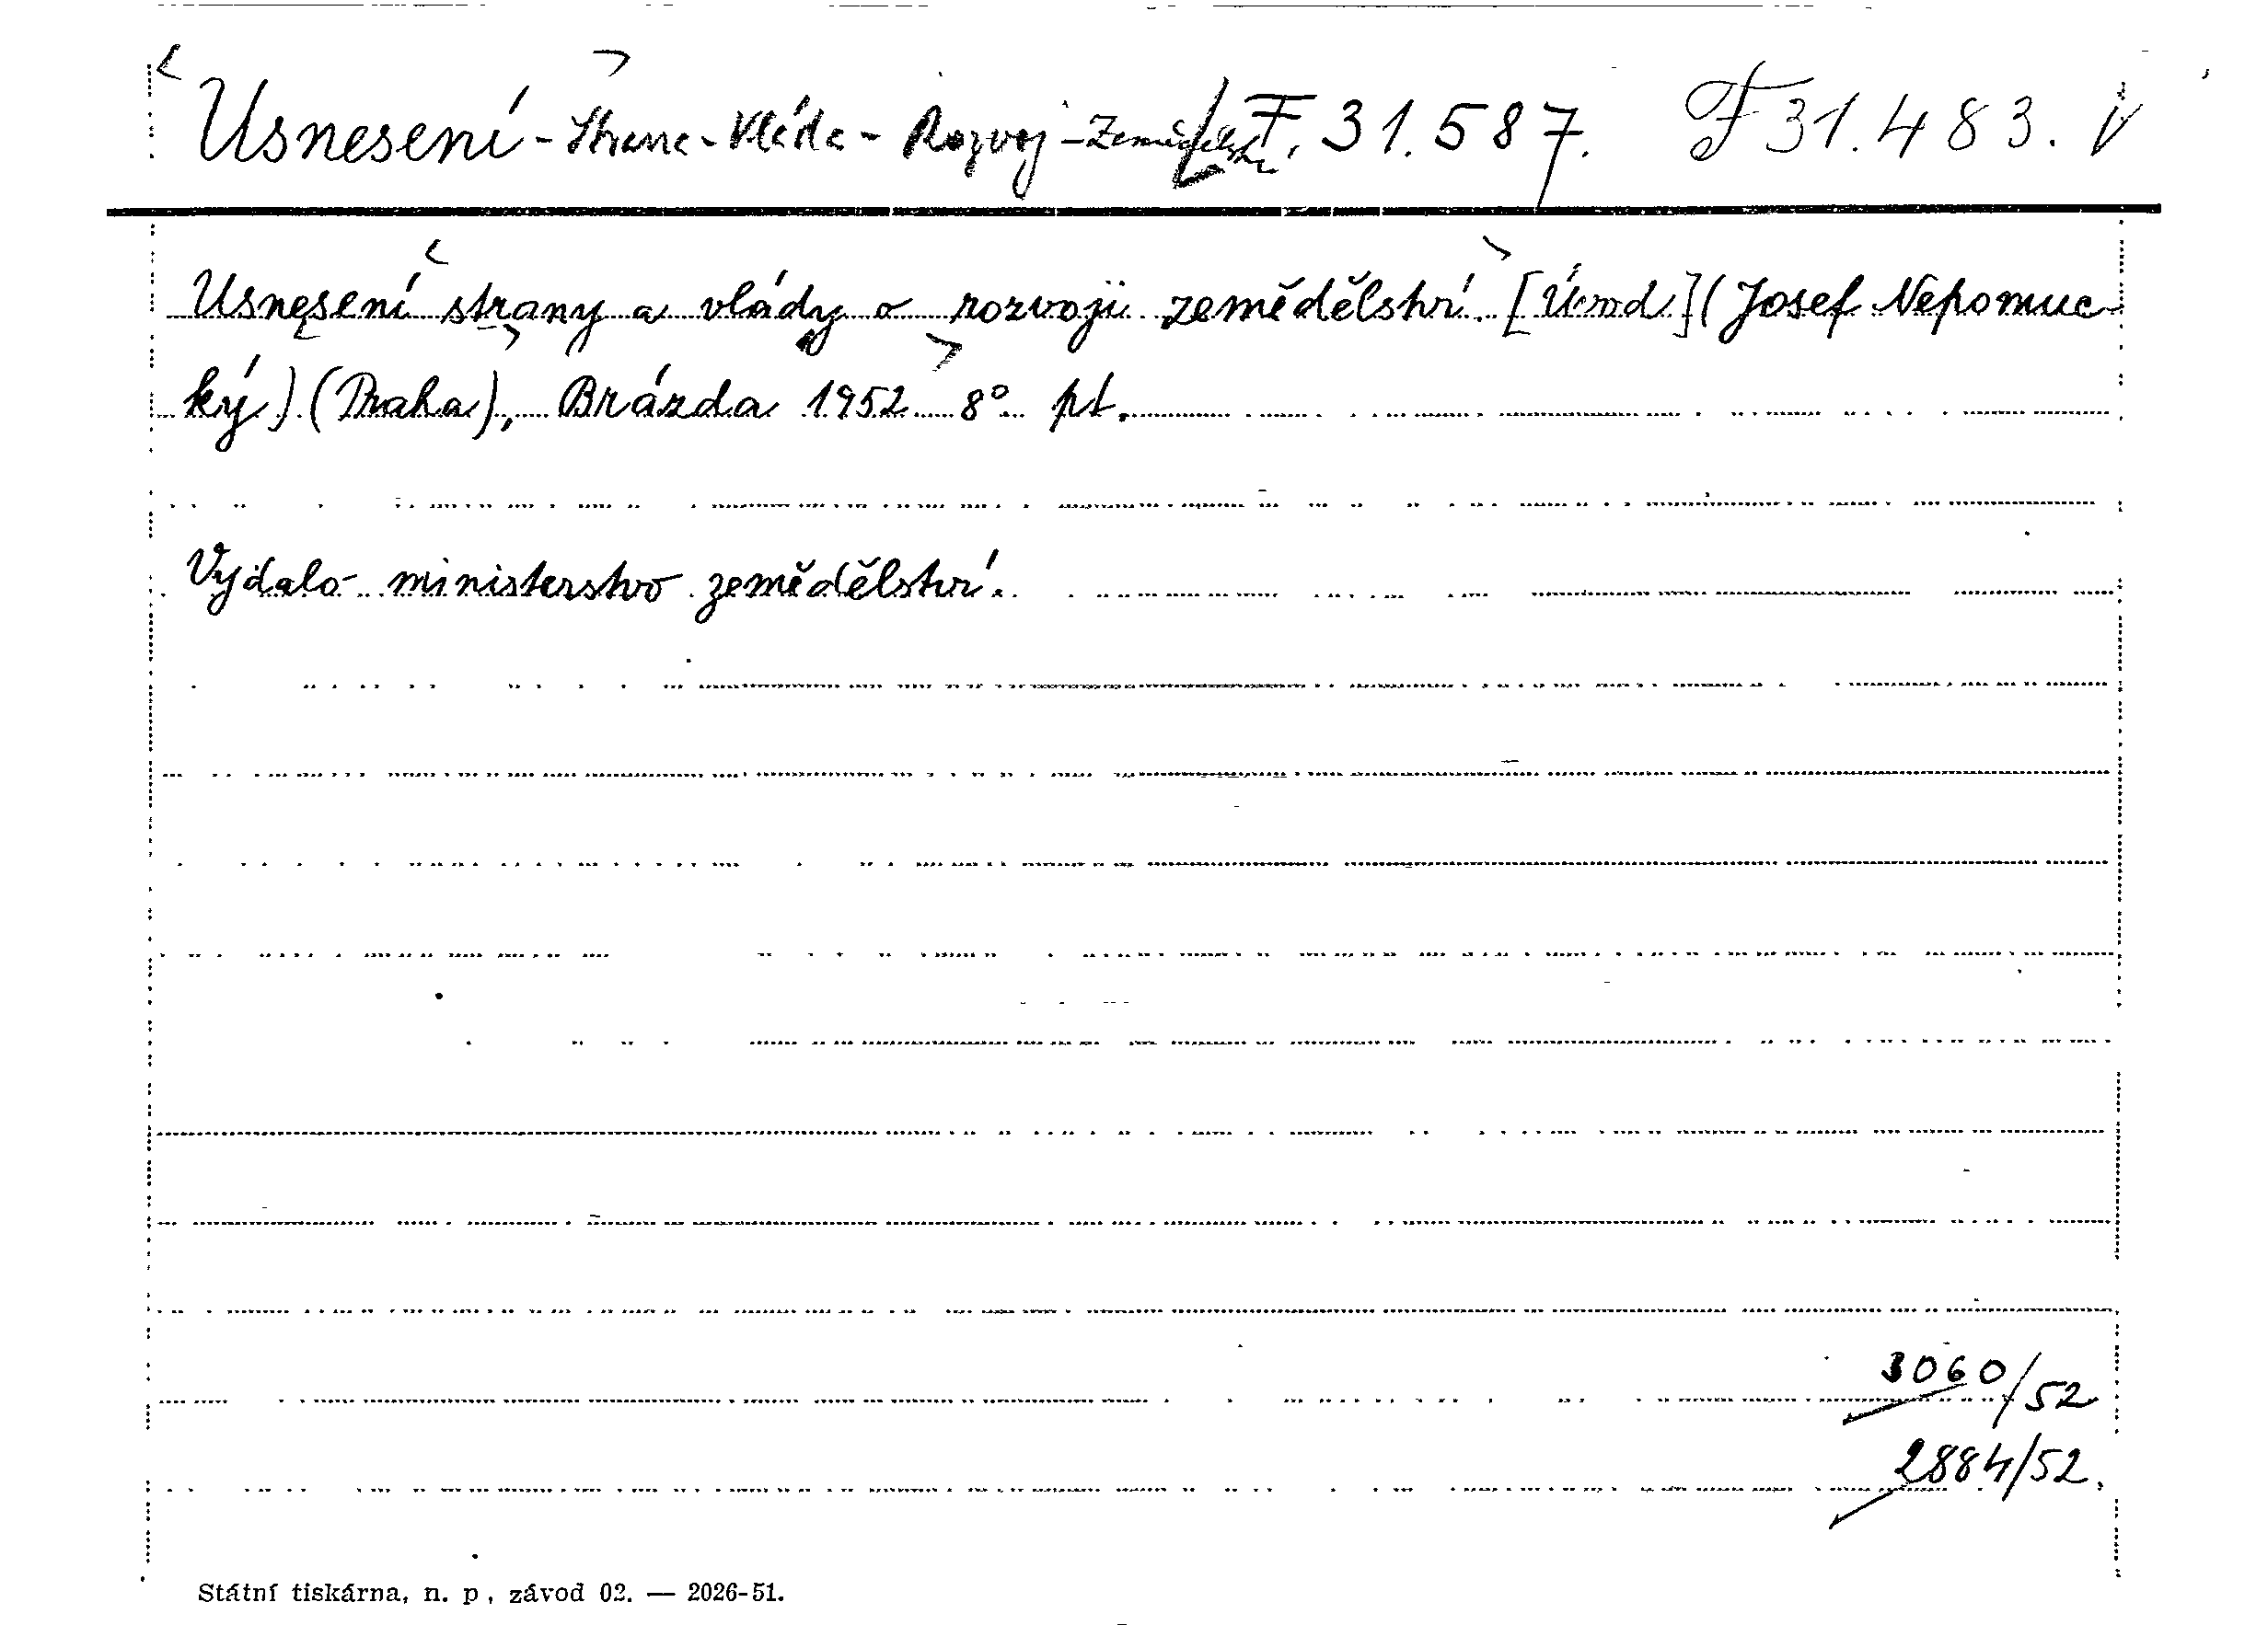 Usnesení - Strana - Vláda - Rozvoj - Zemědělství F. 31.587. F 31.483. V
Usnesení strany a vlády o rozvoji zemědělství. [Úvod] (Josef Nepomuc-
ký) (Praha), Brázda 1952 8° pt.
Vydalo ministerstvo zemědělství.
3060/52
2884/52.
Státní tiskárna, n. p., závod 02. — 2026-51.